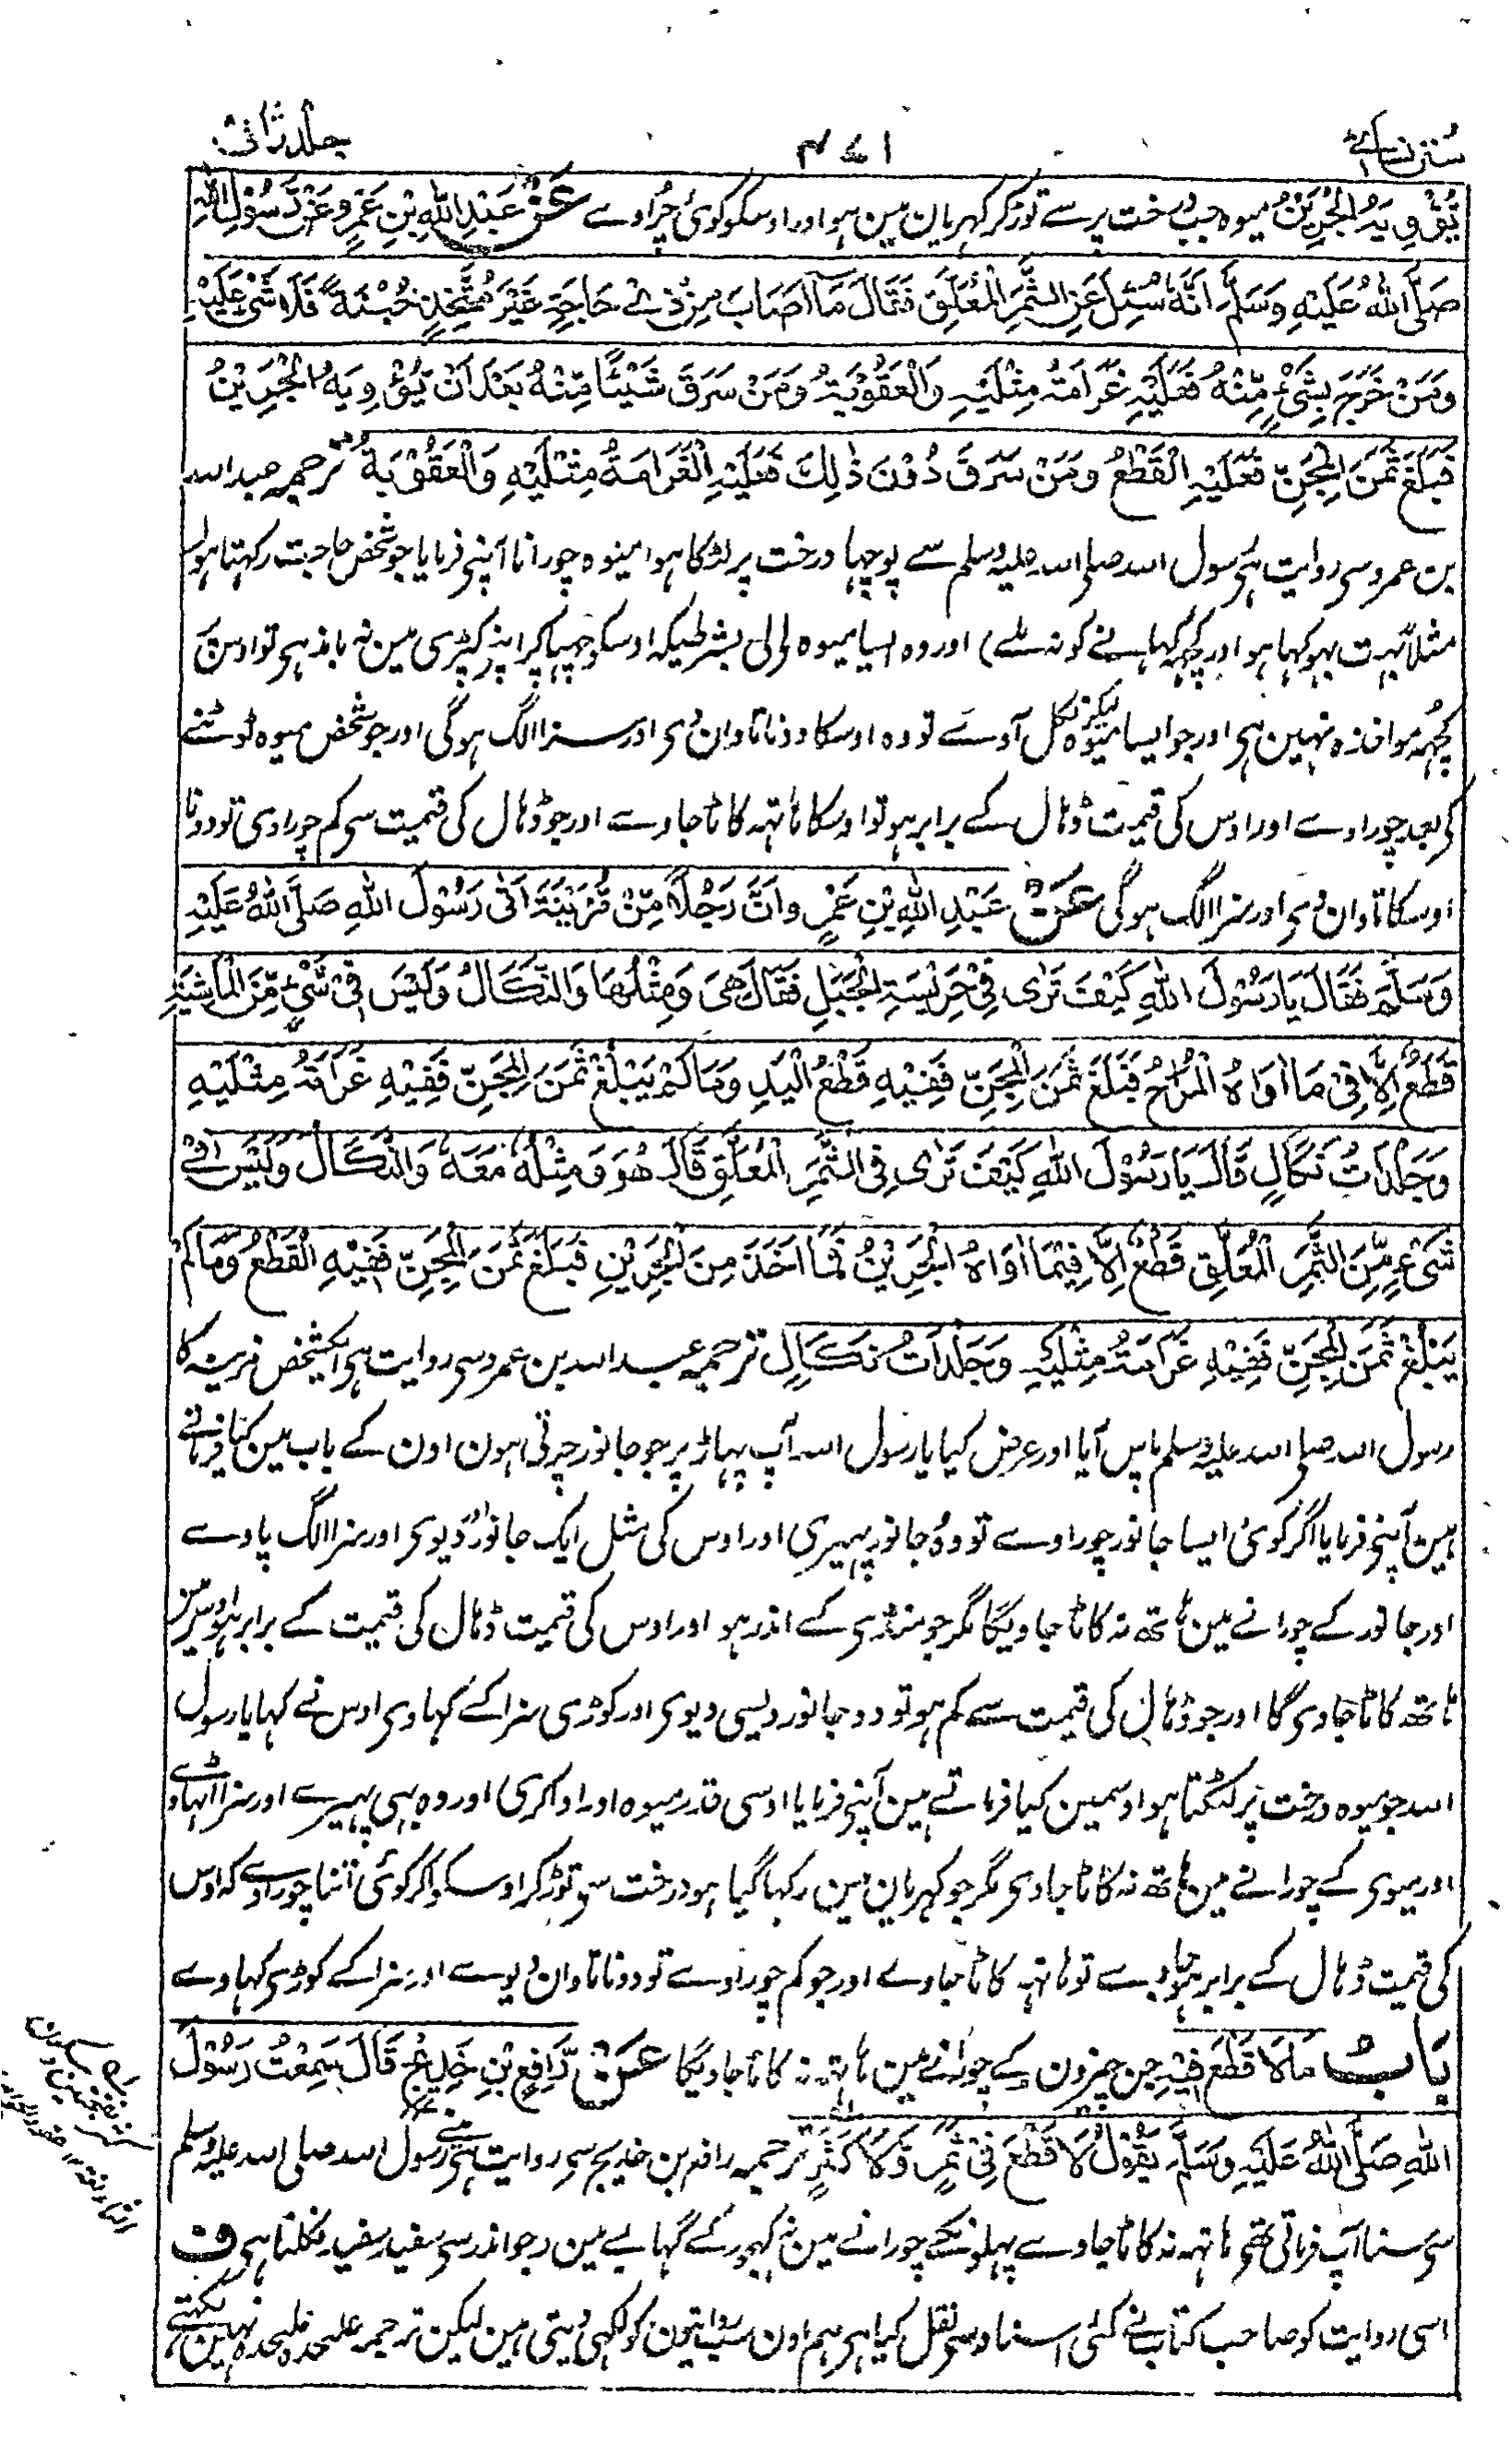 سنن نسائی ۴۷۱ جلد ثانی
يُؤْوِيَهُ الْجَرِيْنُ میوہ جب درخت پر سے توڑ کر کہریان مین ہو اور اوسکو کوئی چراوے عَنْ عَبْدِ اللهِ بْنِ عَمْرٍو عَنْ رَسُوْلِ اللهِ
صَلَّى اللهُ عَلَيْهِ وَسَلَّمَ اَنَّهٗ سُئِلَ عَنِ الثَّمَرِ الْمُعَلَّقِ فَقَالَ مَا اَصَابَ مِنْ ذِيْ حَاجَةٍ غَيْرَ مُتَّخِذٍ خُبْنَةً فَلَا شَيْءَ عَلَيْهِ
وَمَنْ خَرَجَ بِشَيْءٍ مِّنْهُ فَعَلَيْهِ غَرَامَةُ مِثْلَيْهِ وَالْعُقُوْبَةُ وَمَنْ سَرَقَ شَيْئًا مِّنْهُ بَعْدَ اَنْ يُّؤْوِيَهُ الْجَرِيْنُ
فَبَلَغَ ثَمَنَ الْمِجَنِّ فَعَلَيْهِ الْقَطْعُ وَمَنْ سَرَقَ دُوْنَ ذٰلِكَ فَعَلَيْهِ الْغَرَامَةُ مِثْلَيْهِ وَالْعُقُوْبَةُ ترجمہ عبد اللہ
بن عمرو سی روایت ہی رسول اللہ صلی اللہ علیہ وسلم سے پوچہا درخت پر لٹکا ہوا میوہ چورانا آپنی فرمایا جو شخص حاجت رکہتا ہو
مثلاً بہت بہوکہا ہو اور کچہہ کہانے کو نہ ملے) اور وہ ایسا میوہ لی لی بشرطیکہ اوسکو چہپا کر اپنے کپڑی مین نہ باندہی تو اوس پر
کچہہ مواخذہ نہین ہی اور جو ایسا میوہ لیکر نکل آوے تو وہ اوسکا دونا تاوان دی اور سزا الگ ہوگی اور جو شخص میوہ ٹوٹنے
کی بعد چوراوے اور اوس کی قیمت ڈہال کے برابر ہو تو اوسکا ہاتہہ کاٹا جاوے اور جو ڈہال کی قیمت سی کم چوراوی تو دونا
اوسکا تاوان دی اور سزا الگ ہوگی عَنْ عَبْدِ اللهِ بْنِ عَمْرٍو اَنَّ رَجُلًا مِّنْ مُّزَيْنَةَ اَتٰى رَسُوْلَ اللهِ صَلَّى اللهُ عَلَيْهِ
وَسَلَّمَ فَقَالَ يَا رَسُوْلَ اللهِ كَيْفَ تَرٰى فِيْ حَرِيْسَةِ الْجَبَلِ فَقَالَ هِيَ وَمِثْلُهَا وَالنَّكَالُ وَلَيْسَ فِيْ شَيْءٍ مِّنَ الْمَاشِيَةِ
قَطْعٌ اِلَّا فِيْ مَا اٰوَاهُ الْمُرَاحُ فَبَلَغَ ثَمَنَ الْمِجَنِّ فَفِيْهِ قَطْعُ الْيَدِ وَمَا لَمْ يَبْلُغْ ثَمَنَ الْمِجَنِّ فَفِيْهِ غَرَامَةُ مِثْلَيْهِ
وَجَلَدَاتُ نَكَالٍ قَالَ يَا رَسُوْلَ اللهِ كَيْفَ تَرٰى فِي الثَّمَرِ الْمُعَلَّقِ قَالَ هُوَ وَمِثْلُهٗ مَعَهٗ وَالنَّكَالُ وَلَيْسَ فِيْ
شَيْءٍ مِّنَ الثَّمَرِ الْمُعَلَّقِ قَطْعٌ اِلَّا فِيْمَا اٰوَاهُ الْجَرِيْنُ فَمَا اَخَذَ مِنَ الْجَرِيْنِ فَبَلَغَ ثَمَنَ الْمِجَنِّ فَفِيْهِ الْقَطْعُ وَمَا لَمْ
يَبْلُغْ ثَمَنَ الْمِجَنِّ فَفِيْهِ غَرَامَةُ مِثْلَيْهِ وَجَلَدَاتُ نَكَالٍ ترجمہ عبد اللہ بن عمرو سی روایت ہی ایک شخص مزینہ کا
رسول اللہ صلی اللہ علیہ وسلم پاس آیا اور عرض کیا یا رسول اللہ آپ پہاڑ پر جو جانور چرتی ہون اون کے باب مین کیا فرماتے
ہین آپنی فرمایا اگر کوئی ایسا جانور چوراوے تو وہ جانور پہیری اور اوس کی مثل ایک جانور اور دیوی اور سزا الگ پاوے
اور جانور کے چورانے مین ہاتھ نہ کاٹا جاویگا مگر جو منڈی کے اندر ہو اور اوس کی قیمت ڈہال کی قیمت کے برابر ہو اوسمین
ہاتھ کاٹا جاوی گا اور جو ڈہال کی قیمت سے کم ہو تو دو جانور ویسی دیوی اور کوڑی سزا کے کہاوی اوس نے کہا یا رسول
اللہ جو میوہ درخت پر لٹکتا ہو اوسمین کیا فرماتے ہین آپنی فرمایا اوسی قدر میوہ اور ادا کری اور وہ بہی پہیرے اور سزا اٹہاوے
اور میوی کے چورانے مین ہاتھ نہ کاٹا جاوی مگر جو کہریان مین رکہا گیا ہو درخت سی توڑ کر اوسکو اگر کوئی اتنا چوراوے کہ اوس
کی قیمت ڈہال کے برابر ہو جاوے تو ہاتہہ کاٹا جاوے اور جو کم چوراوے تو دونا تاوان دیوے اور سزا کے کوڑی کہاوے
بَابُ مَا لَا قَطْعَ فِيْهِ جن چیزون کے چورانے مین ہاتہہ نہ کاٹا جاویگا عَنْ رَّافِعِ بْنِ خَدِيْجٍ قَالَ سَمِعْتُ رَسُوْلَ
اللهِ صَلَّى اللهُ عَلَيْهِ وَسَلَّمَ يَقُوْلُ لَا قَطْعَ فِيْ ثَمَرٍ وَّلَا كَثَرٍ ترجمہ رافع بن خدیج سی روایت ہی مینے رسول اللہ صلی اللہ علیہ وسلم
سی سنا آپ فرماتی تہی ہاتہہ نہ کاٹا جاوے پہلونکے چورانے مین نہ کہجور کے گہابے مین (جو اندر سی سفید سفید نکلتا ہی ف
اسی روایت کو صاحب کتاب نے کئی اسنادوسی نقل کیا ہی ہم اون سب روایتون کو لکہی دیتی ہین لیکن ترجمہ علیحدہ علیحدہ نہین لکہتے